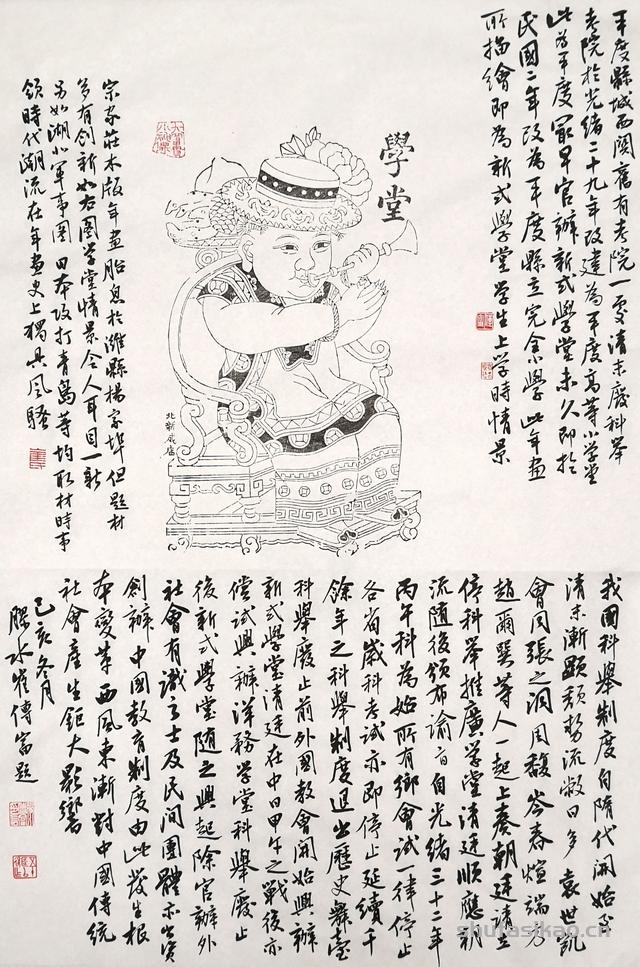 平度縣城西関舊有考院一處清末廢科舉
考院於光緒二十九年改建為平度高等小學堂
此為平度冣早官辦新式學堂未久即於
民國二年改為平度縣立完全小學此年畫
所描繪即為新式學堂學生上學時情景
學堂
宗家莊木版年畫胎息於濰縣楊家埠但題材
多有創新如右圖學堂情景令人耳目一新
另如湖北軍事圖日本攻打青島等均取材時事
領時代潮流在年畫史上獨具風騷
我國科舉制度自隋代開始至
清末漸顯頹勢流敝日多袁世凱
會同張之洞周馥岑春煊端方
趙爾巽等人一起上奏朝廷請立
停科舉推廣學堂清廷順應
流隨後頒布諭旨自光緒三十二年
丙午科為始所有鄉會試一律停止
各省歲科考試亦即停止延續千
餘年之科舉制度退出歷史舞臺
科舉廢止前外國教會開始興辦
新式學堂清廷在中日甲午之戰後亦
償試興辦洋務學堂科舉廢止
後新式學堂隨之興起除官辦外
社會有識之士及民間團體亦出資
創辦中國教育制度由此發生根
本變革西風東漸對中國傳統
社會產生鉅大影響
己亥冬月
膠水崔傳富題
shufasikao.cn